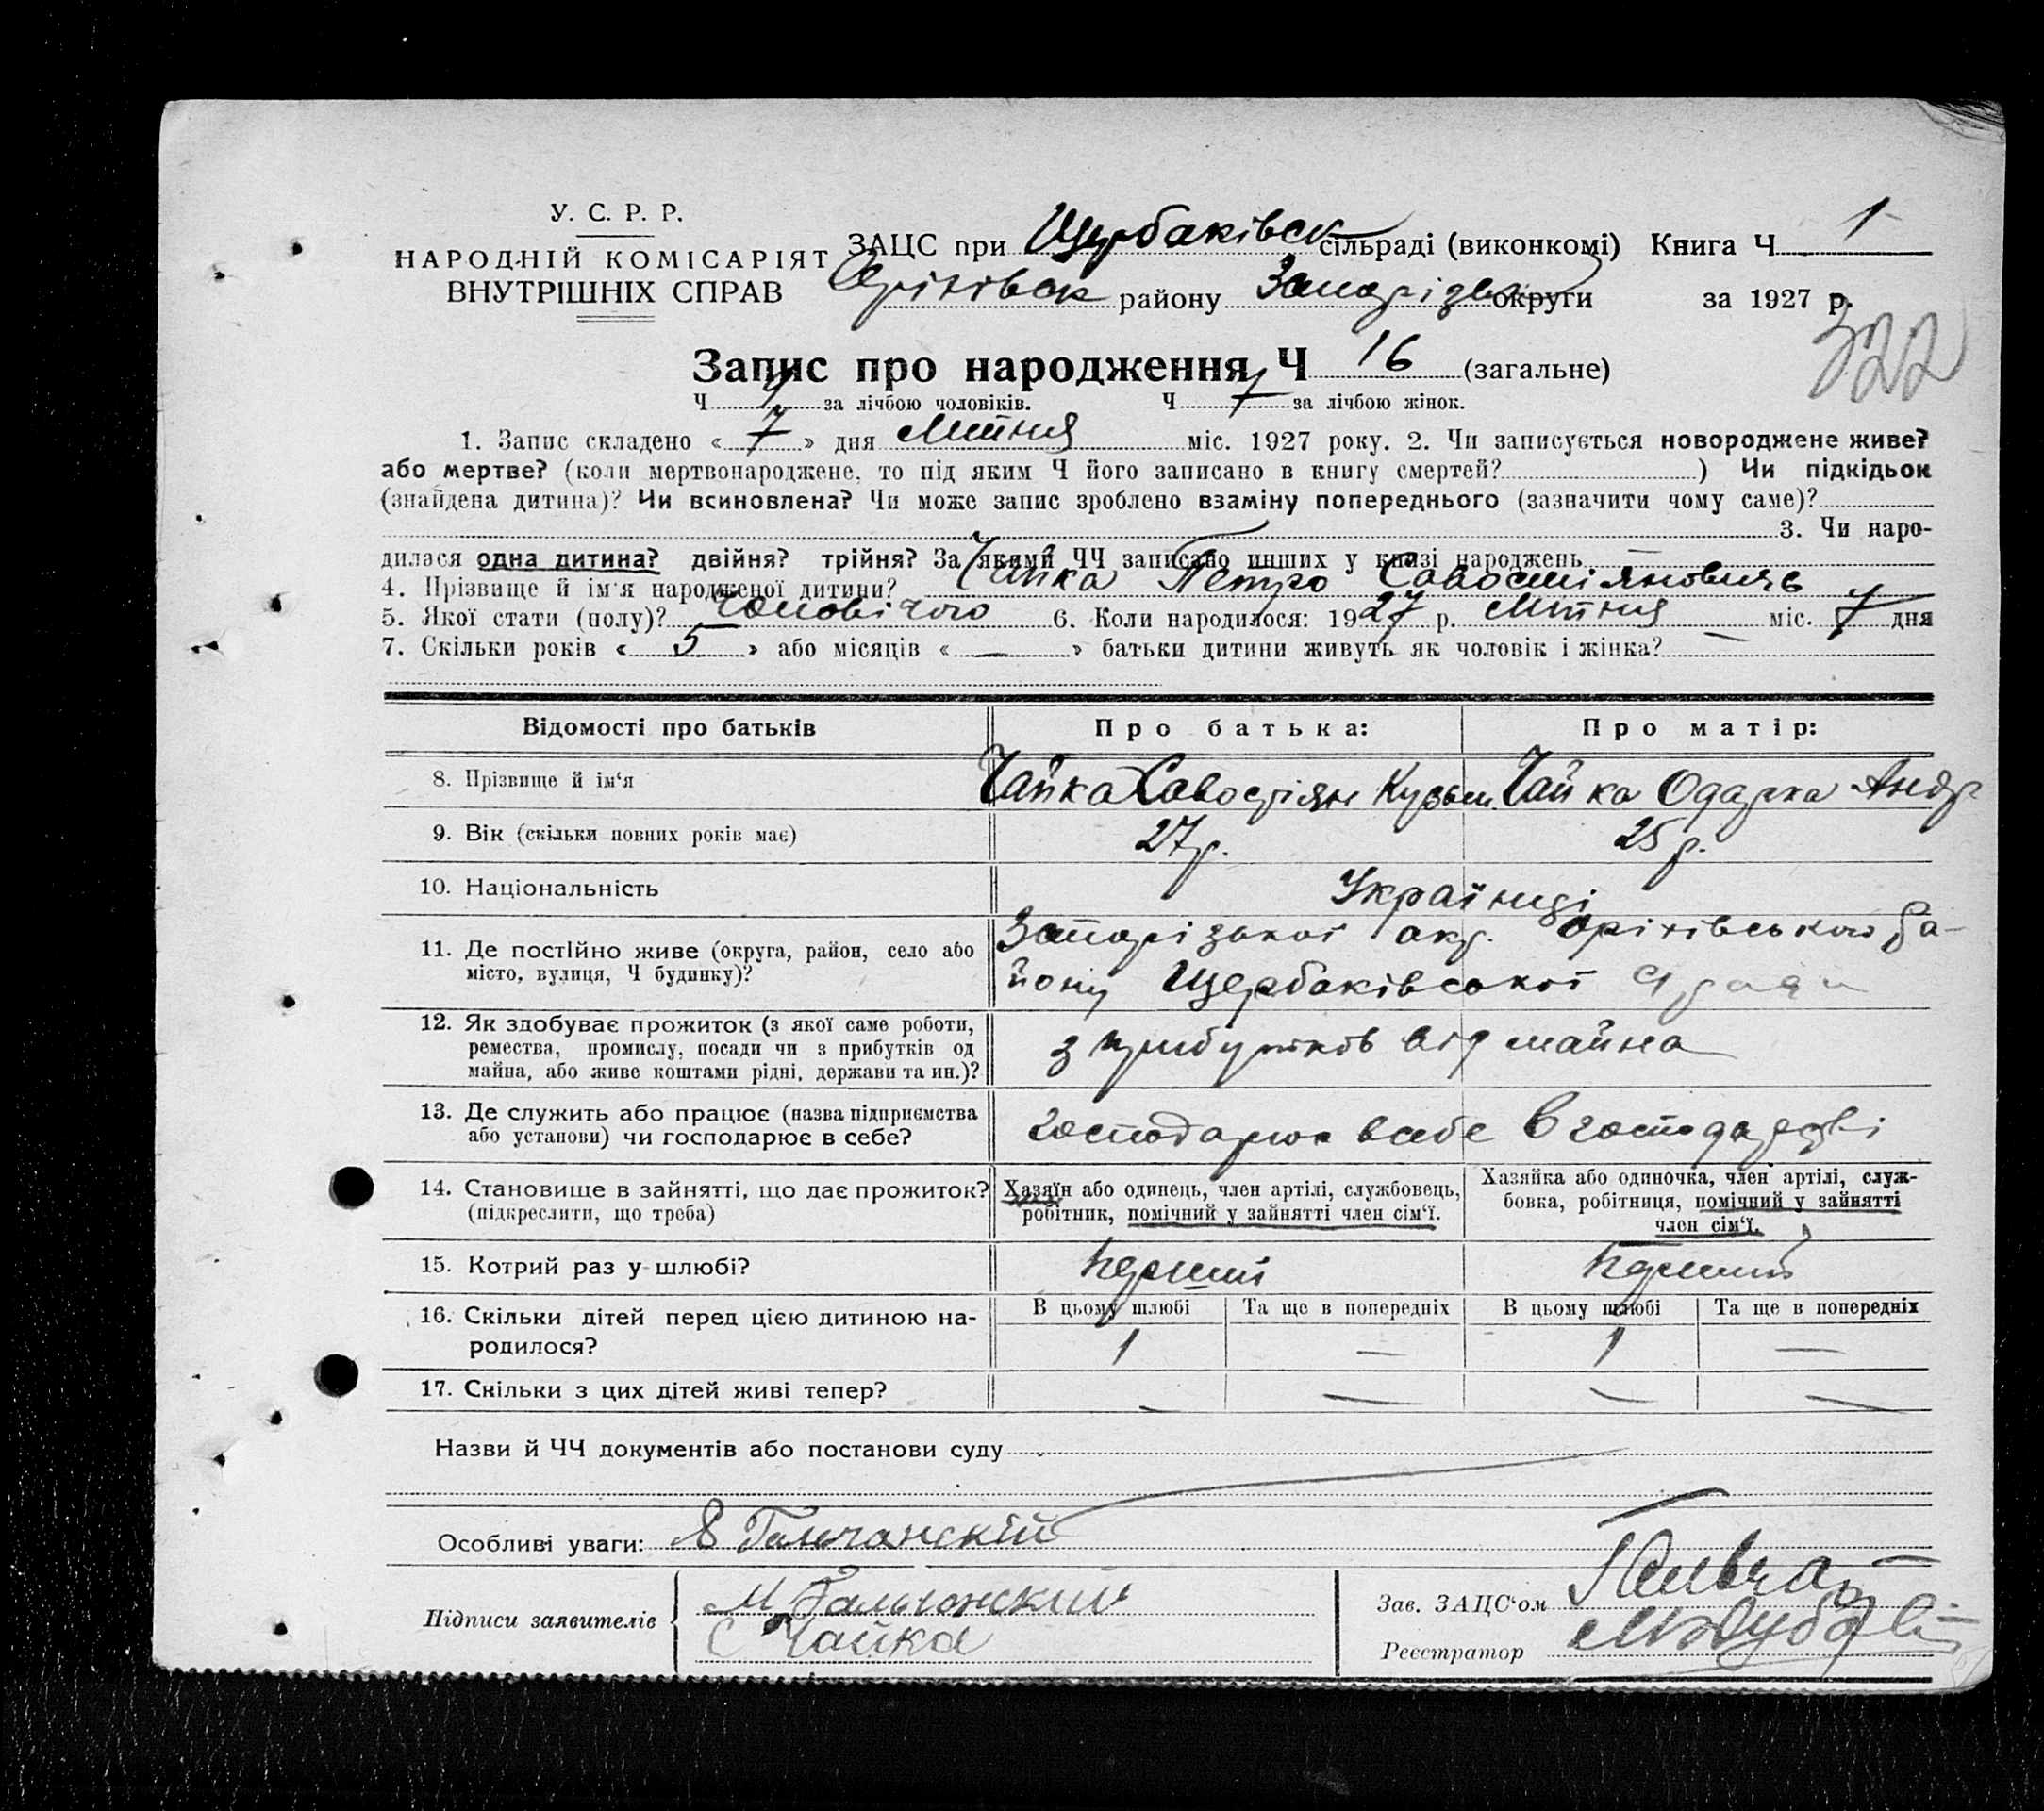 У. С. Р. Р.
НАРОДНІЙ КОМІСАРІЯТ
ВНУТРІШНІХ СПРАВ
ЗАЦС при Щербаківськ сільраді (виконкомі) Книга Ч 1
Оріхівськ району Запорізьк округи за 1927 р.
322
Запис про народження Ч 16 (загальне)
Ч за лічбою чоловіків. Ч за лічбою жінок.
1. Запис складено « 7 » дня Лютня міс. 1927 року. 2. Чи записується новороджене живе?
або мертве? (коли мертвонароджене, то під яким Ч його записано в книгу смертей? ) Чи підкідьок
(знайдена дитина)? Чи всиновлена? Чи може запис зроблено взаміну попереднього (зазначити чому саме)?
3. Чи наро-
дилася одна дитина? двійня? трійня? За якими ЧЧ записано инших у книзі народжень —
4. Прізвище й ім'я народженої дитини? Чайка Петро Савостіянович
5. Якої стати (полу)? чоловічого 6. Коли народилося: 1927 р. Лютня міс. дня
7. Скільки років « 5 » або місяців « — » батьки дитини живуть як чоловік і жінка? —
Відомості про батьків Про батька: Про матір:
8. Прізвище й ім'я Чайка Савостіян Кузьм. Чайка Одарка Андр
9. Вік (скільки повних років має) 27 р. 25 р.
10. Національність Українці
11. Де постійно живе (округа, район, село або місто, вулиця, Ч будинку)? Запорізької окр. Оріхівського ра-
йону Щербаківської с/ради
12. Як здобуває прожиток (з якої саме роботи,
ремества, промислу, посади чи з прибутків од
майна, або живе коштами рідні, держави та ин.)? з прибутків від майна
13. Де служить або працює (назва підприємства
або установи) чи господарює в себе? господарює в себе в господарстві
14. Становище в зайнятті, що дає прожиток?
(підкреслити, що треба)
Хазяїн або одинець, член артілі, службовець,
робітник, помічний у зайнятті член сім'ї.
Хазяйка або одиночка, член артілі, служ-
бовка, робітниця, помічний у зайнятті
член сім'ї.
15. Котрий раз у шлюбі? перший перший
16. Скільки дітей перед цією дитиною на-
родилося?
В цьому шлюбі Та ще в попередніх В цьому шлюбі Та ще в попередніх
1 — 1 —
17. Скільки з цих дітей живі тепер? — — — —
Назви й ЧЧ документів або постанови суду
Особливі уваги:
Підписи заявителів
С Чайка
Зав. ЗАЦС'ом
Реєстратор